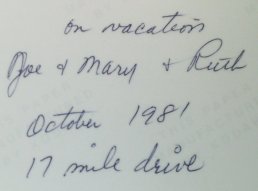 on vacation
Joe & Mary & Ruth
October 1981
17 mile drive